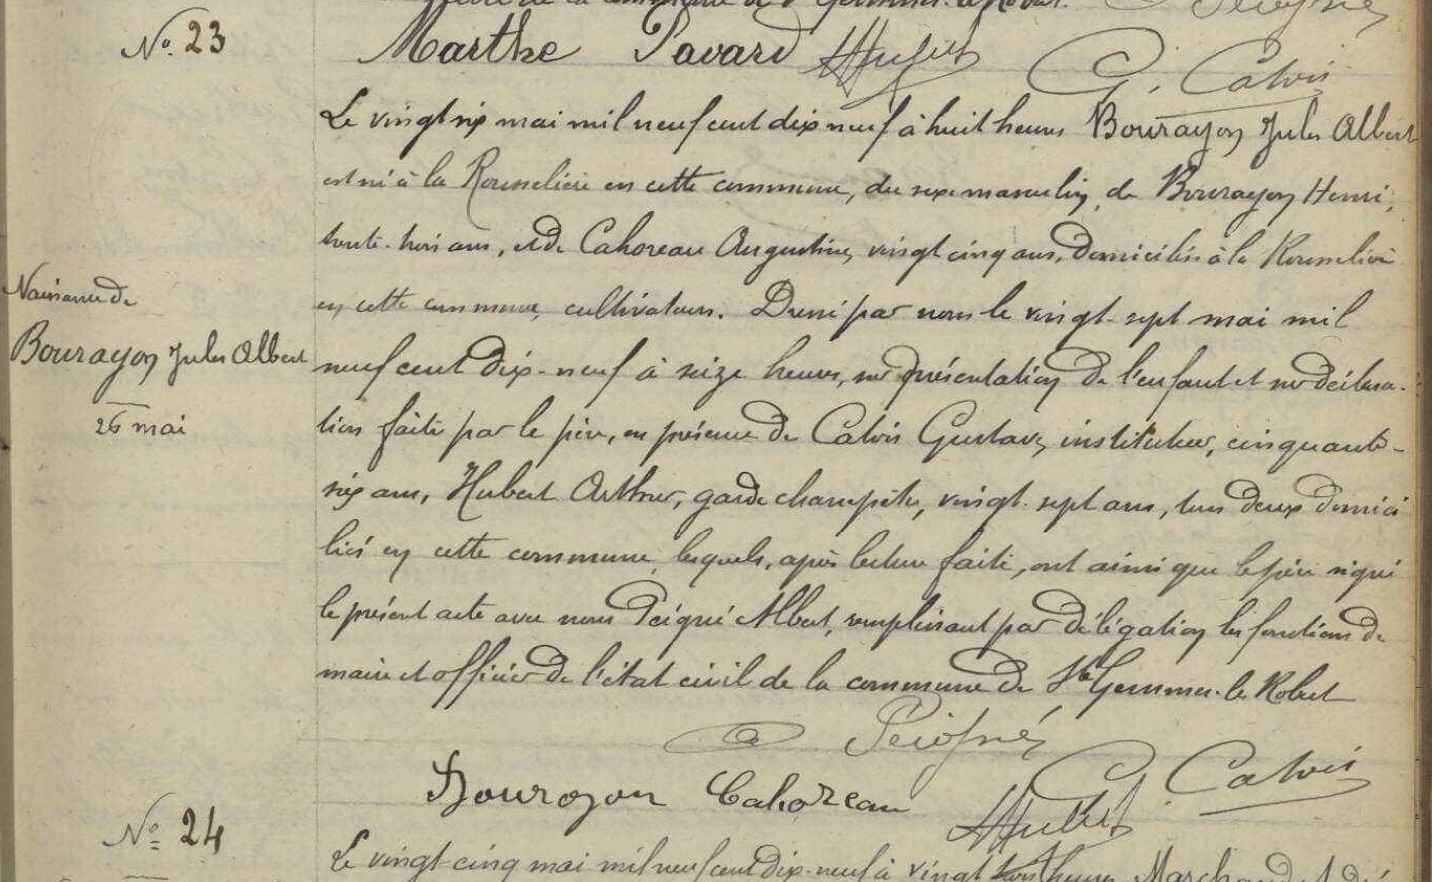 de la commune de Ste Gemmes-le-Robert. Peigné
No. 23
Marthe Pavard AHubert G. Calvis
Le vingt six mai mil neuf cent dix neuf à huit heures Bourayon Jules Albert
est né à la Rousselière en cette commune, du sexe masculin, de Bourayon Henri,
trente-trois ans, et de Cahoreau Augustine, vingt cinq ans, domiciliés à la Rousselière
en cette commune, cultivateurs. Dressé par nous le vingt-sept mai mil
Naissance de
Bourayon Jules Albert
26 mai
neuf cent dix-neuf à seize heures, sur présentation de l'enfant et sur déclara-
tion faite par le père, en présence de Calvis Gustave, instituteur, cinquante-
six ans, Hubert Arthur, garde champêtre, vingt-sept ans, tous deux domici
liés en cette commune, lesquels, après lecture faite, ont ainsi que le père signé
le présent acte avec nous Peigné Albert, remplissant par délégation les fonctions de
maire et officier de l'état civil de la commune de Ste Gemmes-le-Robert
Peigné
Bourayon Cahoreau AHubert G. Calvis
No 24
Le vingt-cinq mai mil neuf cent dix-neuf à vingt heures Marchand